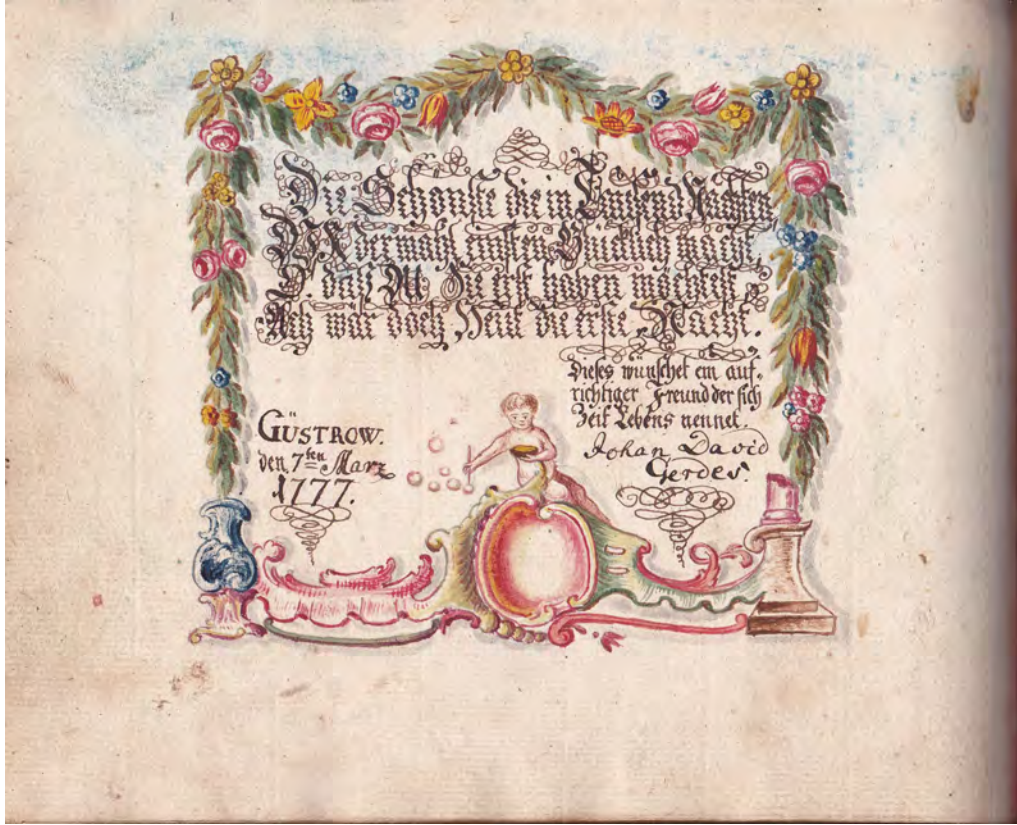 Die Schönste die in Tausend Nächten
dermahl einsten Glücklich macht,
O daß Du die erst haben möchtest
Ach wär doch, Heut die erste, Nacht.
Dieses wünschet ein auf-
richtiger Freund der sich
Zeit Lebens nennet.
Johan David
Gerdes.
GÜSTROW.
den 7ten Marz
1777.